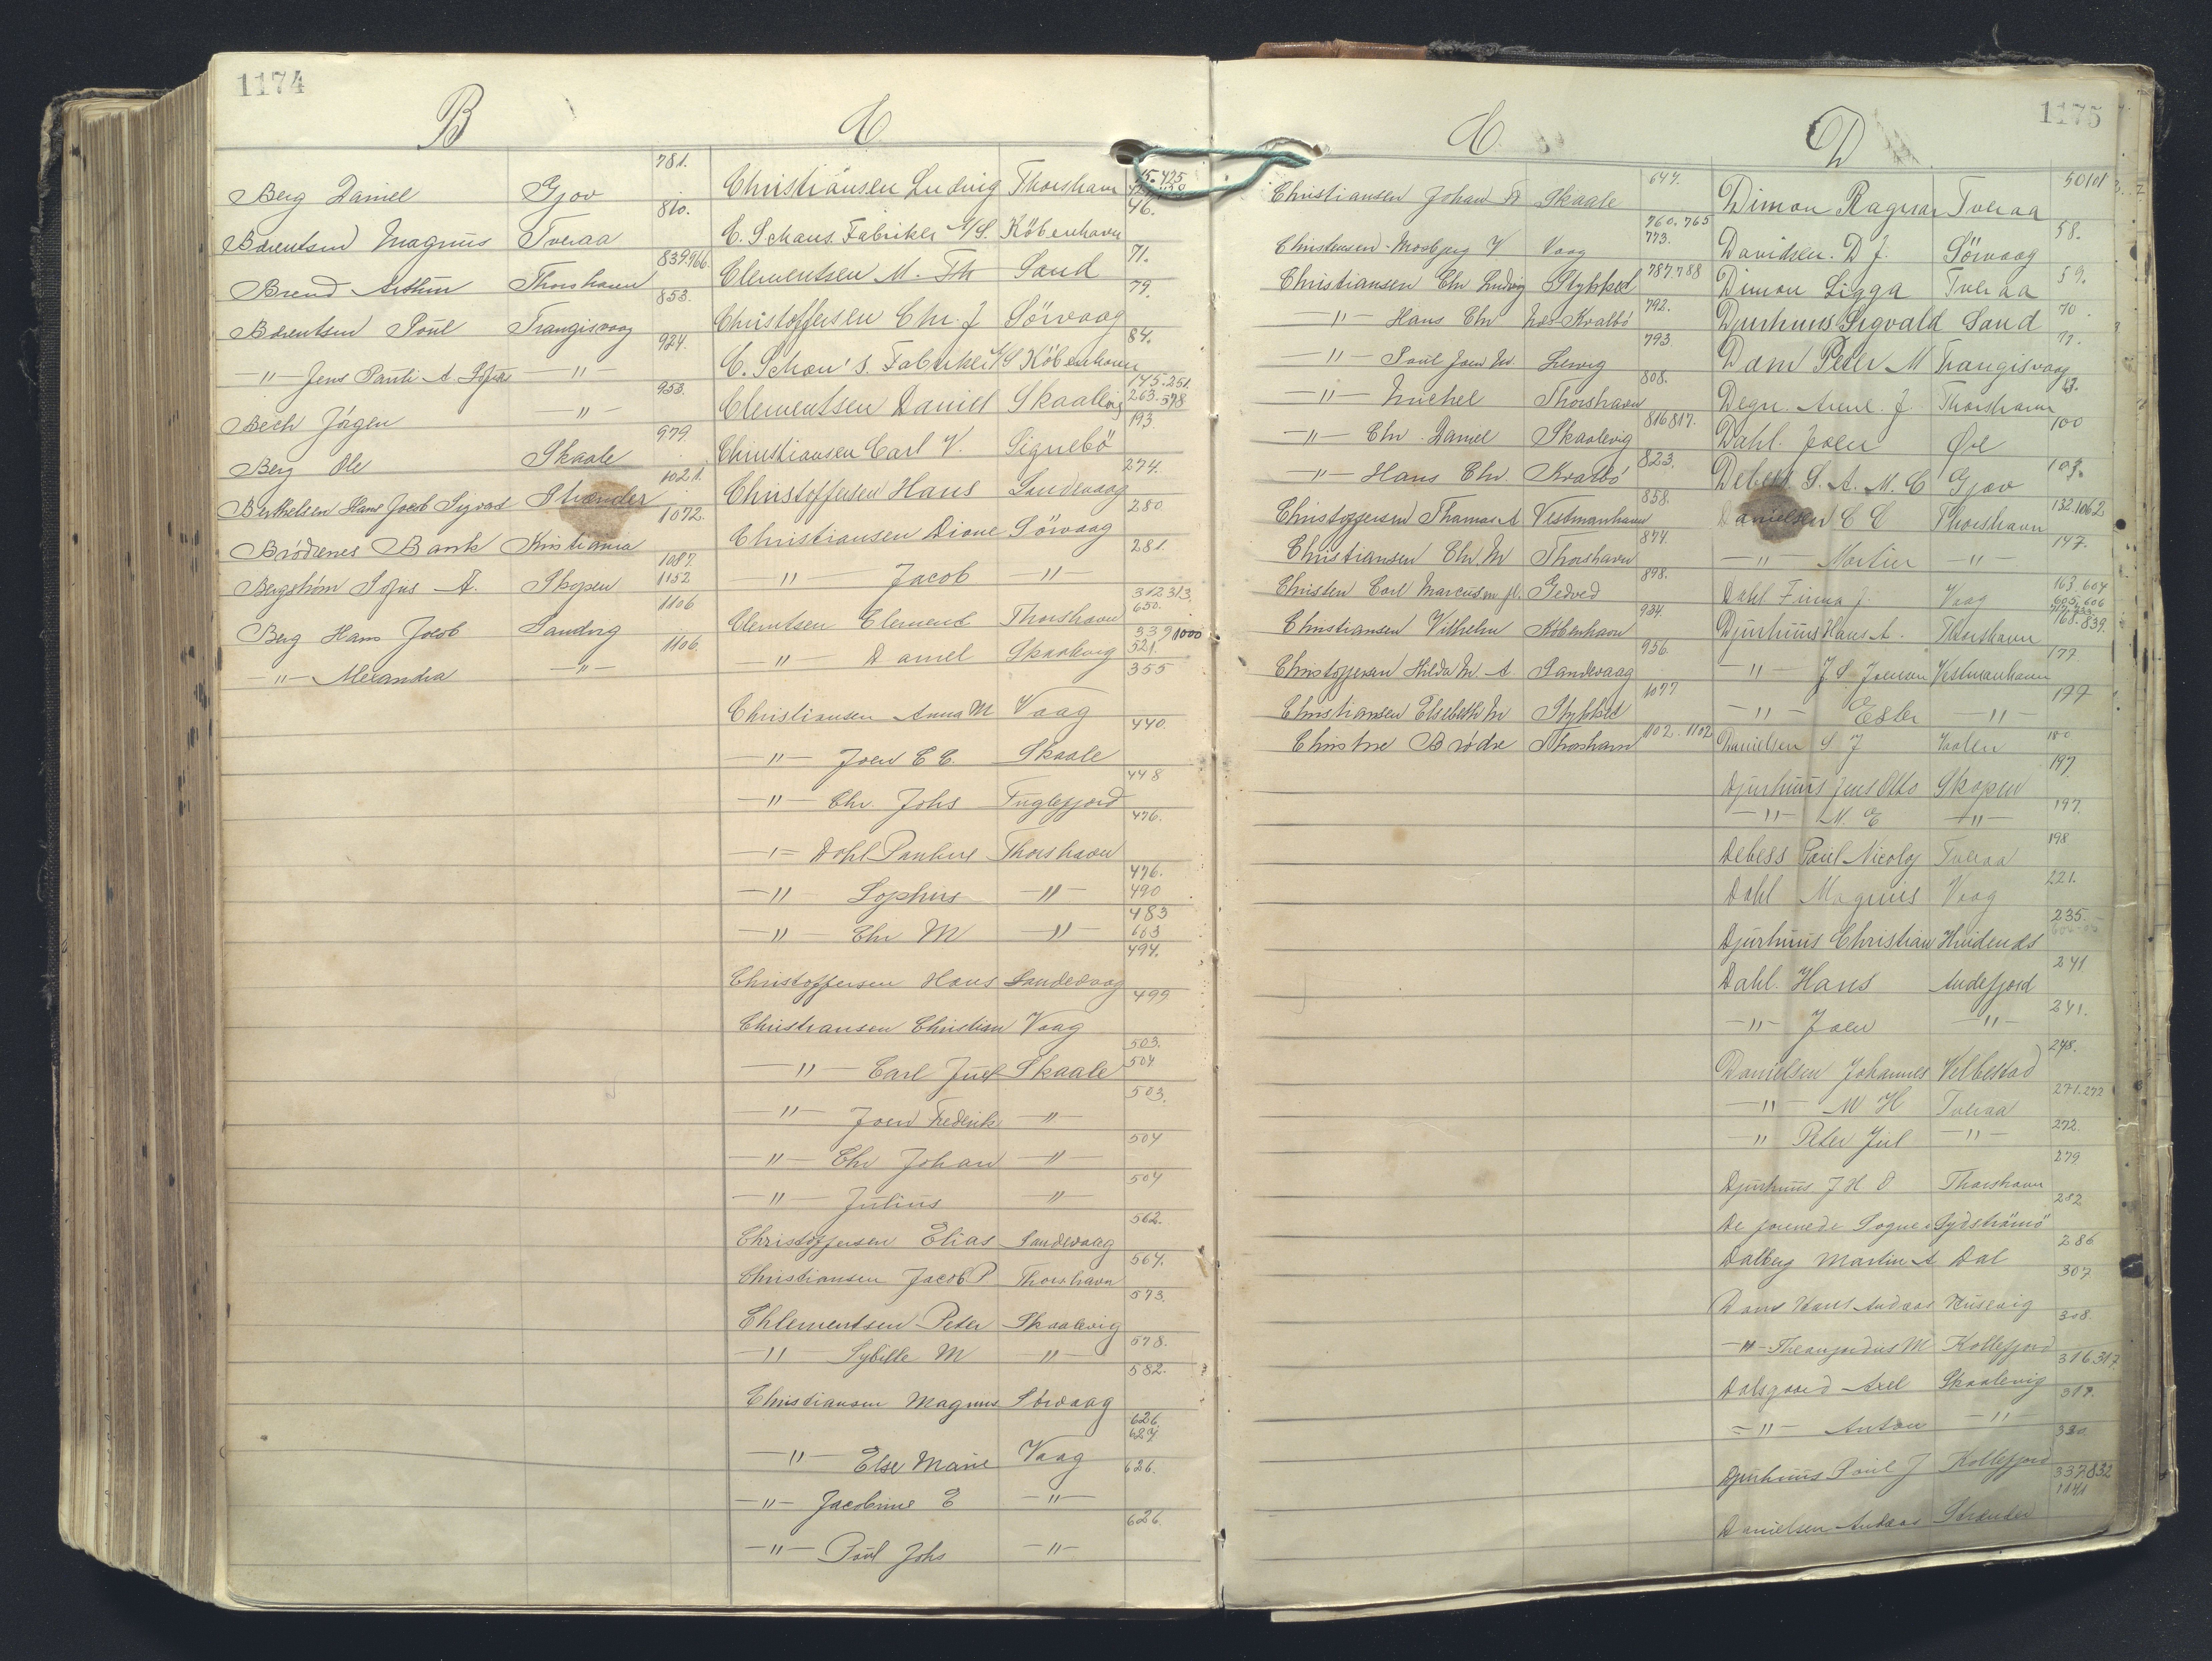 1174
B
Berg Daniel Gjov 781.
Berentsen Magnus Tveraa 810.
Brend Arthur Thorshavn 839.966.
Berentsen Poul Trangisvaag 853.
-"- Jens Pauli A -"- 924.
Bech Jörgen -"- 953.
Berg Ole Skaale 979.
Berthelsen Hans Jacob Sigvard Strænder 1021.
Brödrenes Bank Kristiania 1072.
Bergström Sofus A. Skopen 1087. 1152
Berg Hans Jacob Sandvig 1106
-"- Alexandra -"- 1106.
C
Christiansen Ludvig Thorshavn 15.425
C. Schous Fabriker A/S. Köbenhavn 46.
Clementsen M. Th Sand 71.
Christoffersen Chr. J Sörvaag 79.
C. Schou's. Fabriker A/S Köbenhavn 84.
Clementsen Daniel Skaalevig 145.251. 263.578
Christiansen Carl V. Signebö 193.
Christoffersen Hans Sandevaag 274.
Christiansen Dione Sörvaag 280
-"- Jacob -"- 281.
Clemtsen Clement Thorshavn 312.313. 650.
-"- Daniel Skaalevig 339 1000 521.
Christiansen Anna M Vaag 355
-"- Joen C C. Skaale 440.
-"- Chr. Johs Fuglefjord 448
-"- Dahl Pauline Thorshavn 476.
-"- Sophus -"- 476. 490
-"- Chr M -"- 483 663
Christoffersen Hans Sandevaag 494.
Christiansen Christian Vaag 499
-"- Carl Juel Skaale 503. 504
-"- Joen Frederik -"- 503.
-"- Chr Johan -"- 504
-"- Julius -"- 504
Christoffersen Elias Sandevaag 562.
Christiansen Jacob P Thorshavn 564.
Chlementsen Peter Skaalevig 573.
-"- Sybille M -"- 578.
Christiansen Magnus Sörvaag 582.
-"- Else Marie Vaag 626. 629.
-"- Jacobine E -"- 626.
-"- Poul Johs -"- 626.
1175
C.
Christiansen Johan Fr Skaale 647.
Christensen-Mosbjerg V. Vaag 760.765 773.
Christiansen Chr Ludvig Stykket 787.788
-"- Hans Chr Kvalbö 792.
-"- Poul Joen M. Lervig 793
-"- Michel Thorshavn 808.
-"- Chr. Daniel Skaalevig 816817.
-"- Hans Chr. Kvalbö 823.
Christoffersen Thomas A Vestmanhavn 858.
Christiansen Chr. M Thorshavn 874.
Christen Carl Marcussen Gedved 898.
Christiansen Vilhelm Köbenhavn 934.
Christoffersen Hilda M. A Sandevaag 956.
Christiansen Elsebeth M Stykket 1077
Christine Brödre Thorshavn 1102.1102
D
Dimon Ragnar Tveraa 50101
Davidsen. D J. Sörvaag 58.
Dimon Sigga Tveraa 59.
Djurhuus Sigvald Sand 70.
Dam Peter M Trangisvaag 77.
Degn. Anne. J. Thorshavn
Dahl. Joen Öre 100
Debess S. A. M. C Gjov 103.
Danielsen C C Thorshavn 132.1062
-"- Martin -"- 147.
Dahl Finna J. Vaag 163.604 605.606
Djurhuus Hans A. Thorshavn 768.839.
-"- J. S. Joensen Vestmanhavn 177.
-"- Ester -"- 177
Danielsen S J Vaalen 180
Djurhuus Jens Otto Skopen 197.
-"- M. E -"- 197.
Debess Poul Nicolaj Tveraa 198
Dahl Magnus Vaag 221.
Djurhuus Christian Hvidenæs 235.
Dahl. Hans Andefjord 241
-"- Joen -"- 241.
Danielsen Johannes Velbestad 248.
-"- M H Tveraa 271.272
-"- Peter Jul -"- 272
Djurhuus J H O Thorshavn 279.
De forenede Sogne Sydströmö 282
Dalberg Martin A Dal 286
Dam Hans Andreas Husevig 307
-"- M Kollefjord 308.
Dalsgaard Axel Skaalevig 316317.
-"- Anton -"- 317.
Djurhuus Poul J Kollefjord 330
Danielsen Andreas Strænder 337.832 1141